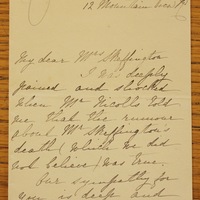 12 Mountain View Rd
My dear Mrs Skeffington
I was deeply
pained and shocked
when Mr Nicolls told
me that the rumour
about Mr Skeffington's
death (which we did
not believe) was true.
Our sympathy for
you is deep and